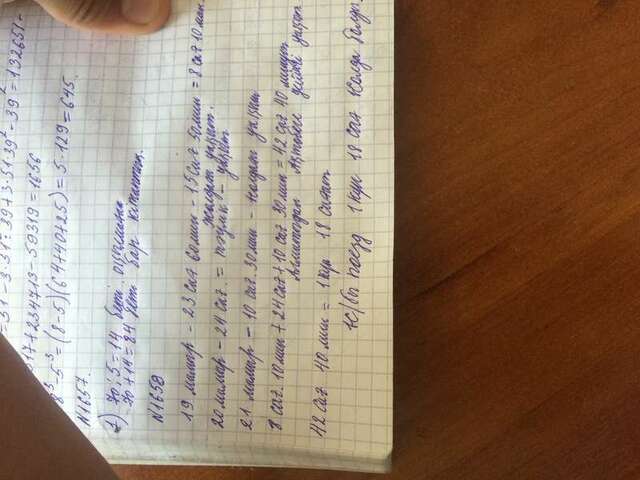 = 51 - 3·51·39 + 3·51·39² - 39² = 132651 -
517 + 234713 - 59319 = 1656
8³-5³ = (8-5)(64+40+25) = 5·129 = 645.
N1657.
1) 70:5=14 беті оқылмаған
70+14=84 беті бар кітаптың.
N1658
19 мамыр - 23 сағ 60 мин - 15 сағ 50 мин = 8 сағ 10 мин
жолдағы уақыт.
20 мамыр - 24 сағ. = тәулік - уақыт
21 мамыр - 10 сағ. 30 мин - жолдағы уақыт
8 сағ. 10 мин + 24 сағ + 10 сағ 30 мин = 42 сағ 40 минут
Алматыдан Ақтөбеге дейінгі уақыт
42 сағ 40 мин = 1 күн 18 сағат
Ж/бы поезд 1 күн 18 сағ жолда болды.